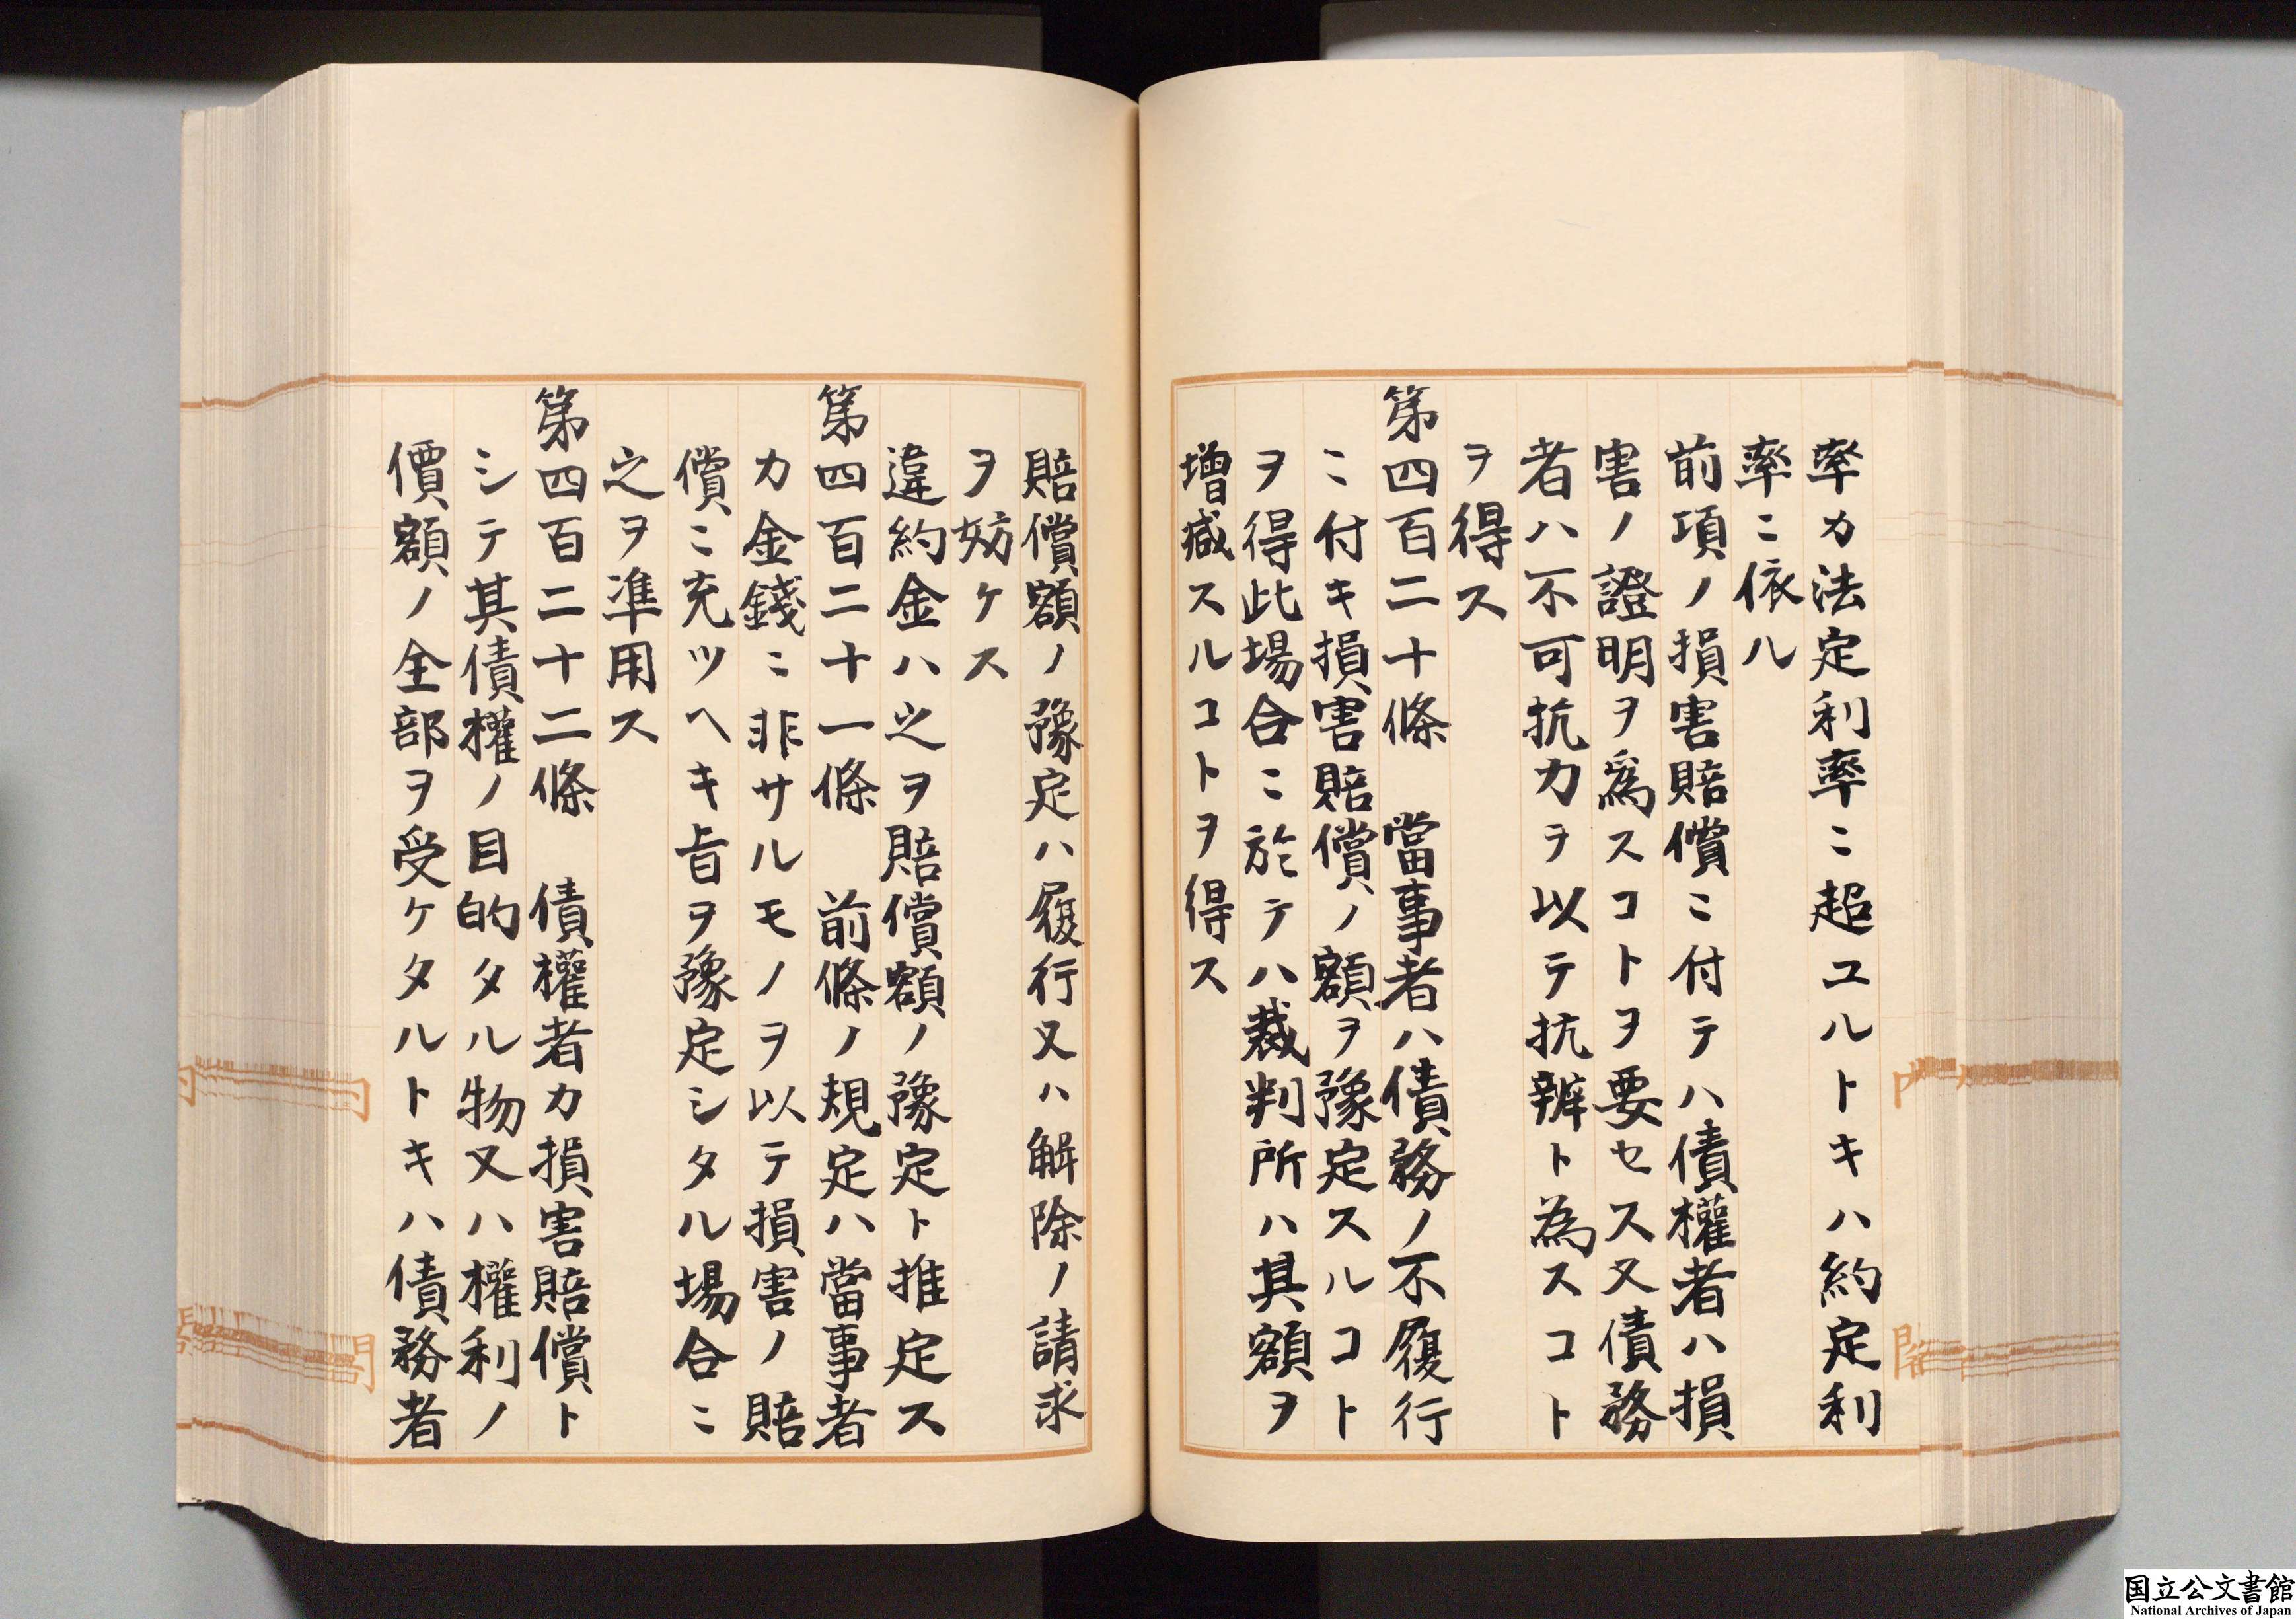 率カ法定利率ニ超ユルトキハ約定利
率ニ依ル
前項ノ損害賠償ニ付テハ債權者ハ損
害ノ證明ヲ爲スコトヲ要セス又債務
者ハ不可抗力ヲ以テ抗辨ト為スコト
ヲ得ス
第四百二十條　當事者ハ債務ノ不履行
ニ付キ損害賠償ノ額ヲ豫定スルコト
ヲ得此場合ニ於テハ裁判所ハ其額ヲ
增减スルコトヲ得ス
賠償額ノ豫定ハ履行又ハ解除ノ請求
ヲ妨ケス
違約金ハ之ヲ賠償額ノ豫定ト推定ス
第四百二十一條　前條ノ規定ハ當事者
カ金錢ニ非サルモノヲ以テ損害ノ賠
償ニ充ツヘキ旨ヲ豫定シタル場合ニ
之ヲ準用ス
第四百二十二條　債權者カ損害賠償ト
シテ其債權ノ目的タル物又ハ權利ノ
價額ノ全部ヲ受ケタルトキハ債務者
国立公文書館
National Archives of Japan